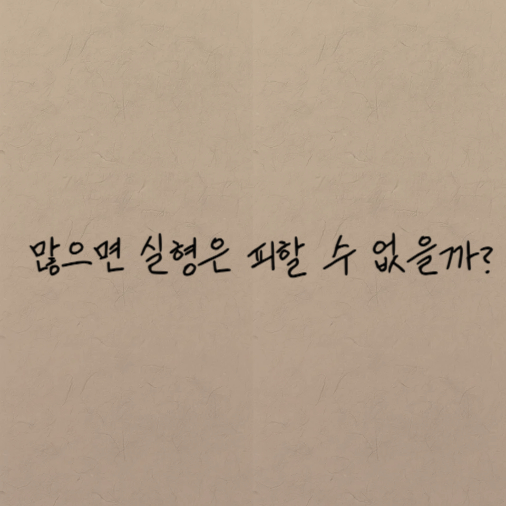 많으면 실형은 피할 수 없을까?